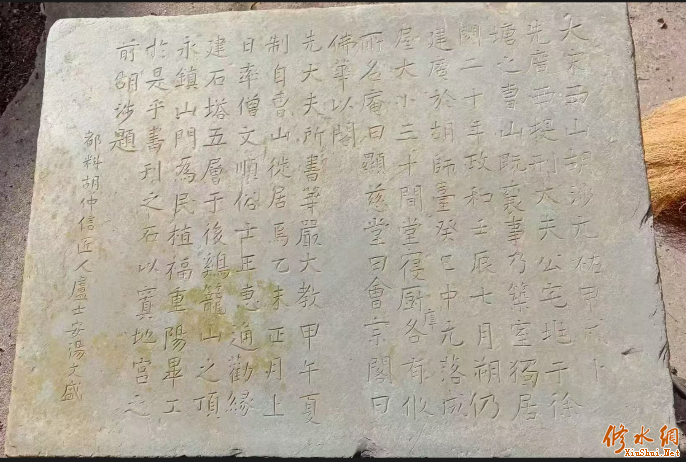 大宋西山胡涉元佑甲戌卜
先廣西提刑大夫公宅地于徐
塘之曹山既襄事乃築室獨居
閱二十年政和壬辰七月朔仍
建庵於胡師臺癸巳中元落成
屋大小三十間堂寢厨庫各有攸
所名庵曰顯慈堂曰會宗閣曰
佛華以閣
先大夫所書華嚴大教甲午夏
制自曹山徙居焉乙未正月上
日率僧文順俗士王惠通勸緣
建石塔五層于後鷄籠山之頂
永鎮山門為民植福重陽畢工
於是乎書刊之石以寘地宮之
前胡涉題
都料胡仲信匠人盧士安陽文盛
修水網
XiuShui.Net